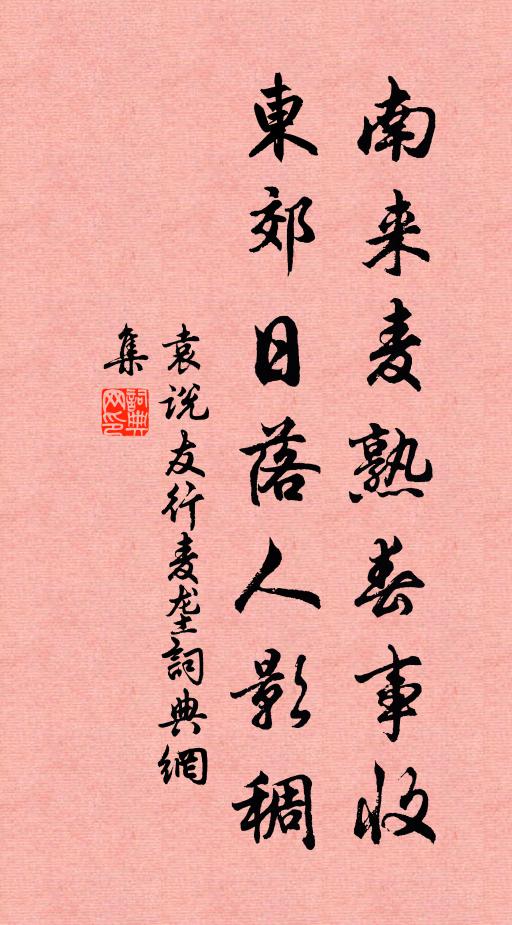 南来麦熟春事收
東郊日落人影稠
袁说友行麦垄詞典網
集
詞典網印